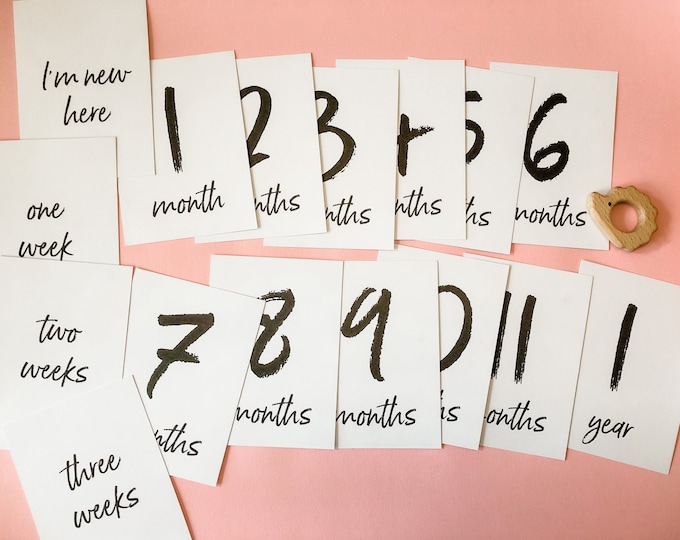 I'm new
here
1
month
2
nths
3
onths
4
nths
5
nths
6
months
one
week
two
weeks
three
weeks
7
nths
8
months
9
months
0
nths
11
onths
1
year